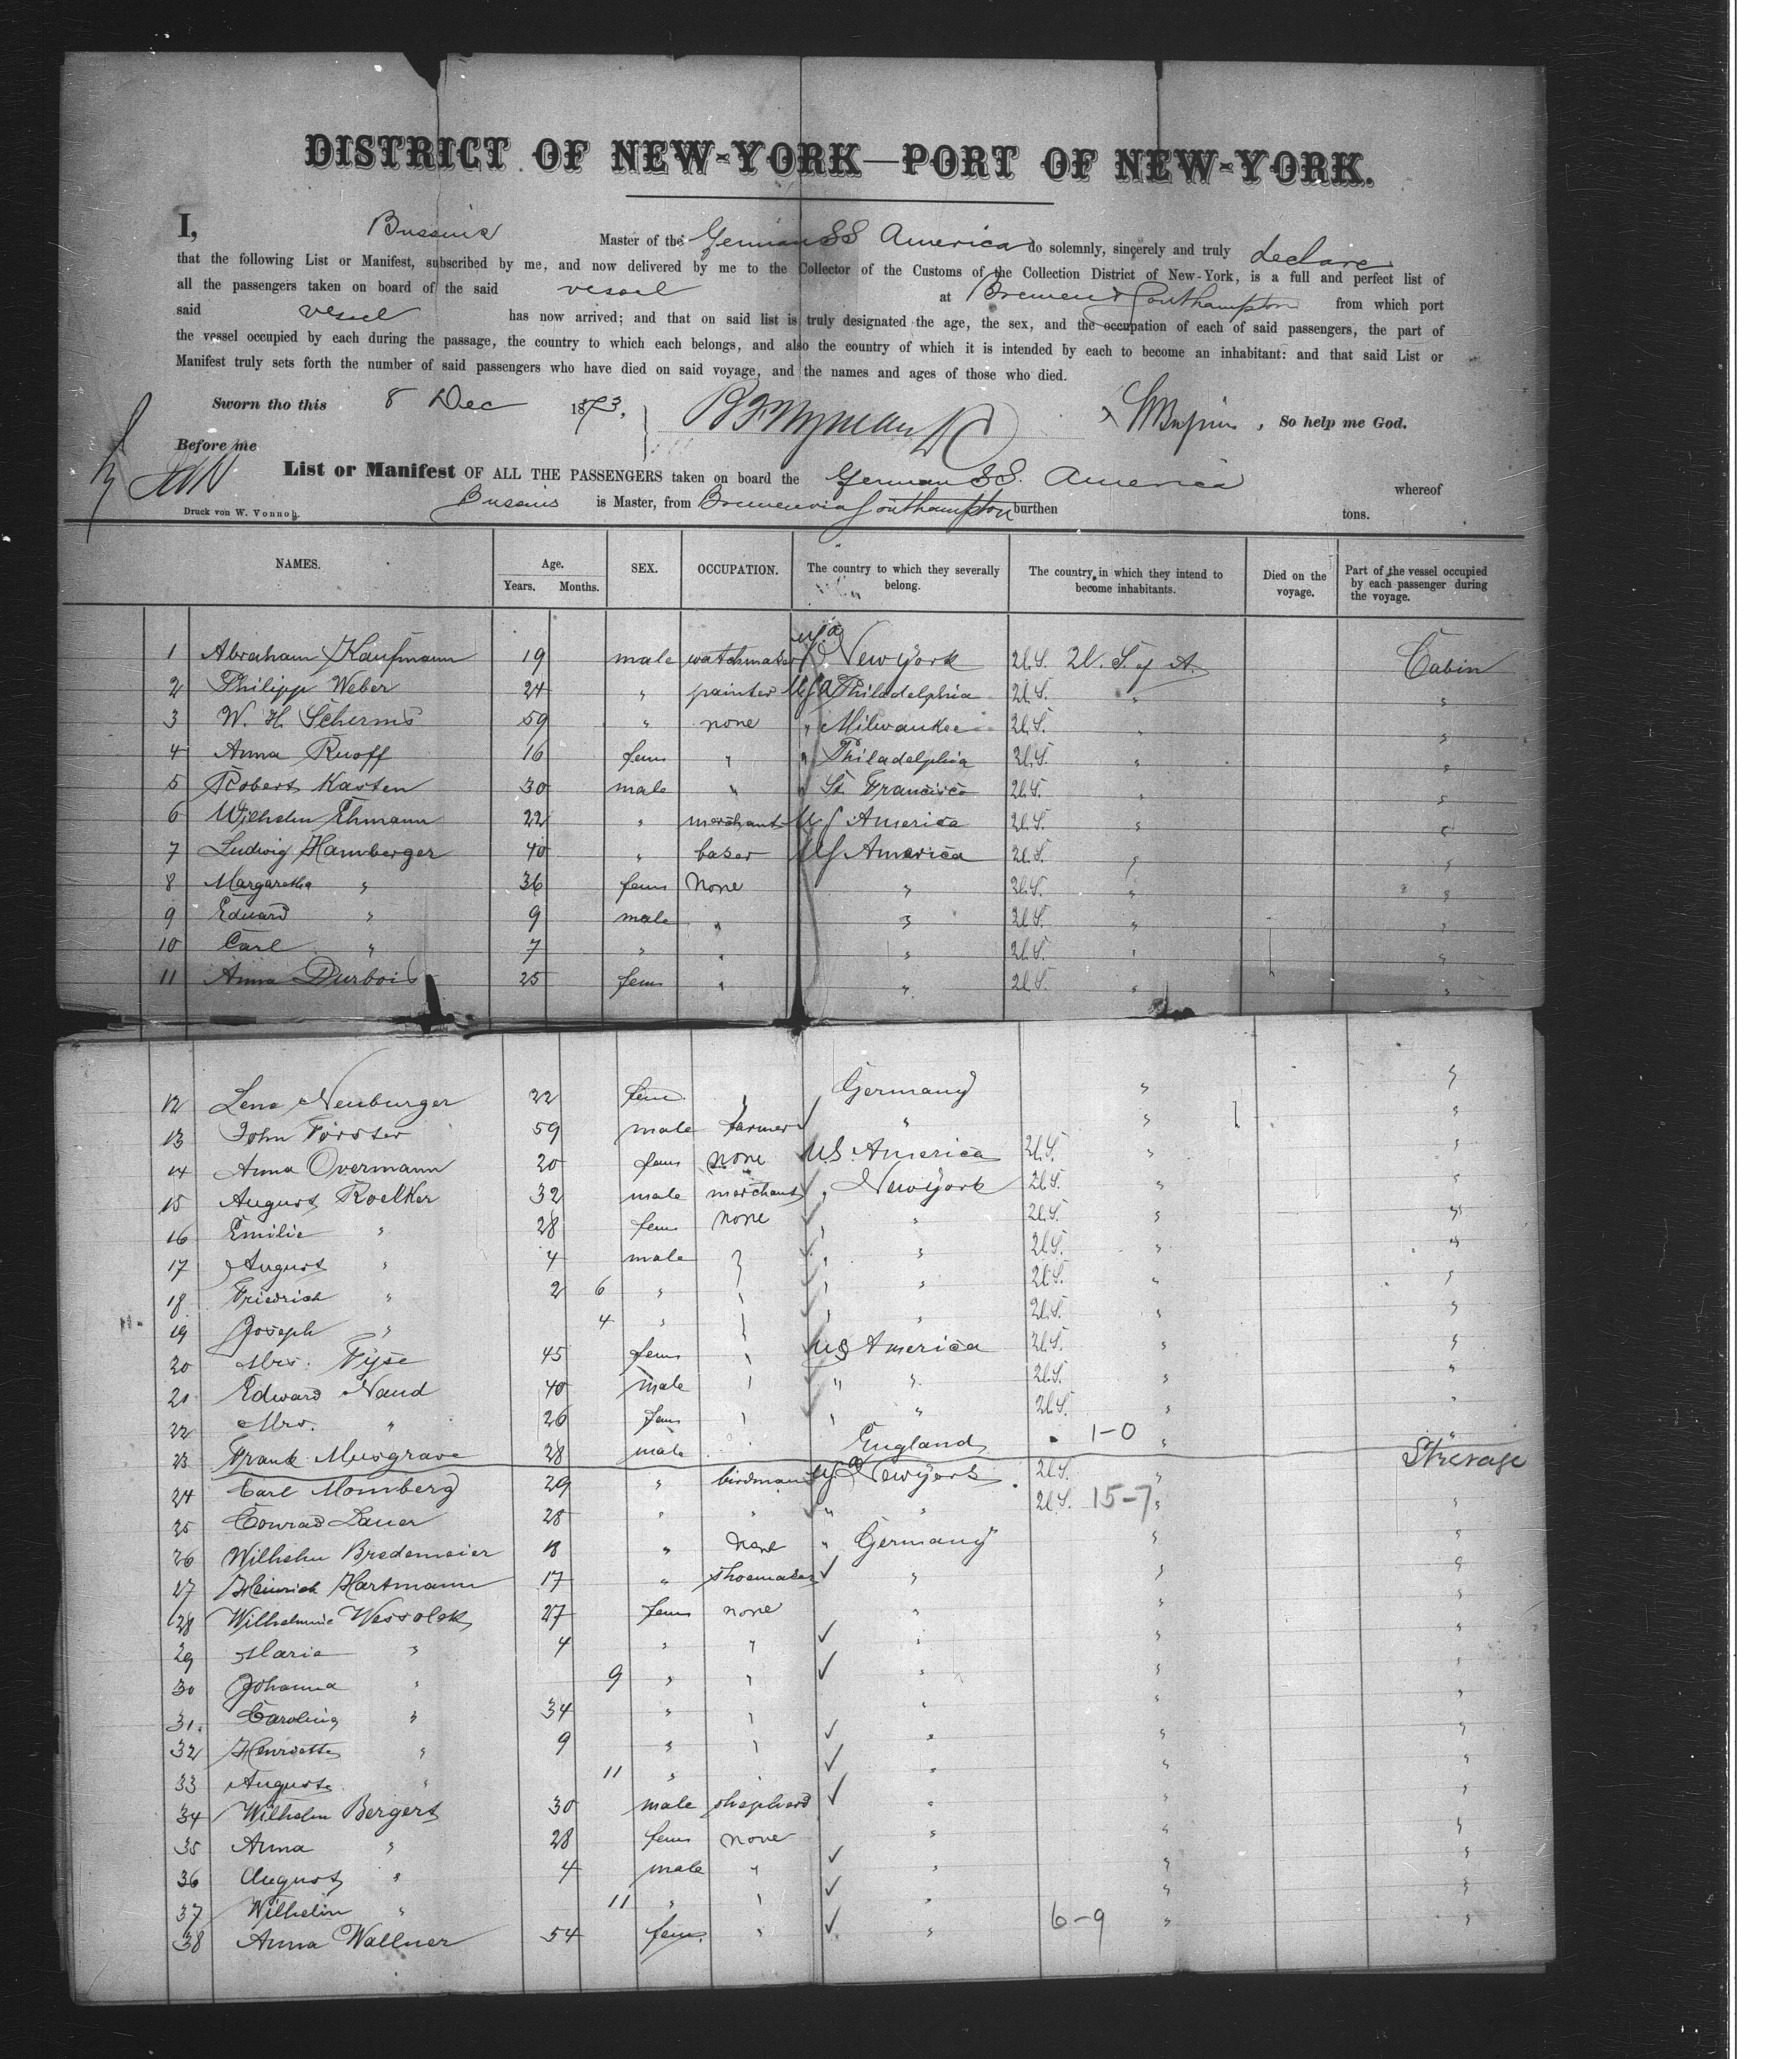 DISTRICT OF NEW-YORK—PORT OF NEW-YORK.
I, Bussius Master of the German SS America do solemnly, sincerely and truly declare
that the following List or Manifest, subscribed by me, and now delivered by me to the Collector of the Customs of the Collection District of New-York, is a full and perfect list of
all the passengers taken on board of the said vessel at Bremen & Southampton from which port
said vessel has now arrived; and that on said list is truly designated the age, the sex, and the occupation of each of said passengers, the part of
the vessel occupied by each during the passage, the country to which each belongs, and also the country of which it is intended by each to become an inhabitant: and that said List or
Manifest truly sets forth the number of said passengers who have died on said voyage, and the names and ages of those who died.
Sworn tho this 8 Dec 1873. So help me God.
Before me
List or Manifest OF ALL THE PASSENGERS taken on board the German SS. America whereof
Bussius is Master, from Bremen via Southampton burthen tons.
Druck von W. Vonnoh.
NAMES. Age. Years. Months. SEX. OCCUPATION. The country to which they severally belong. The country in which they intend to become inhabitants. Died on the voyage. Part of the vessel occupied by each passenger during the voyage.
1 Abraham Kaufmann 19 male watchmaker New York U.S. U. S. of A. Cabin
2 Philipp Weber 24 " painter USA Philadelphia U.S. " "
3 W. H. Scherms 59 " none " Milwaukee U.S. " "
4 Anna Ruoff 16 fem " " Philadelphia U.S. " "
5 Robert Kasten 30 male " " St. Francisco U.S. " "
6 Wilhelm Ehmann 22 " merchant US America U.S. " "
7 Ludwig Hamberger 40 " baker US America U.S. " "
8 Margaretha " 36 fem none " U.S. " "
9 Eduard " 9 male " " U.S. " "
10 Carl " 7 " " " U.S. " "
11 Anna Durbois 25 fem " " U.S. " "
12 Lena Neuburger 22 fem " Germany " "
13 John Förster 59 male farmer " " "
14 Anna Overmann 20 fem none US America U.S. " "
15 August Roelker 32 male merchant " New York U.S. " "
16 Emilie " 28 fem none " " U.S. " "
17 August " 4 male " " " U.S. " "
18 Friedrich " 2 6 " " " " U.S. " "
19 Joseph " 4 " " " " U.S. " "
20 Mrs. Tyse 45 fem " US America U.S. " "
21 Edward Naud 40 male " " " U.S. " "
22 Mrs. " 26 fem " " " U.S. " "
23 Frank Musgrave 28 male England 1-0 " "
24 Carl Momberg 29 " birdman USA New York U.S. " Strerage
25 Conrad Lauer 28 " " " " U.S. 15-7 " "
26 Wilhelm Bredemeier 18 " none " Germany " "
27 Heinrich Hartmann 17 " shoemaker " " "
28 Wilhelmine Wessolek 27 fem none " " "
29 Maria " 4 " " " " "
30 Johanna " 9 " " " " "
31. Caroline " 34 " " " " "
32 Henriette " 9 " " " " "
33 Auguste " 11 " " " " "
34 Wilhelm Bergert 30 male shepherd " " "
35 Anna " 28 fem none " " "
36 August " 4 male " " " "
37 Wilhelm " 11 " " " " "
38 Anna Wallner 54 fem. " " 6-9 " "